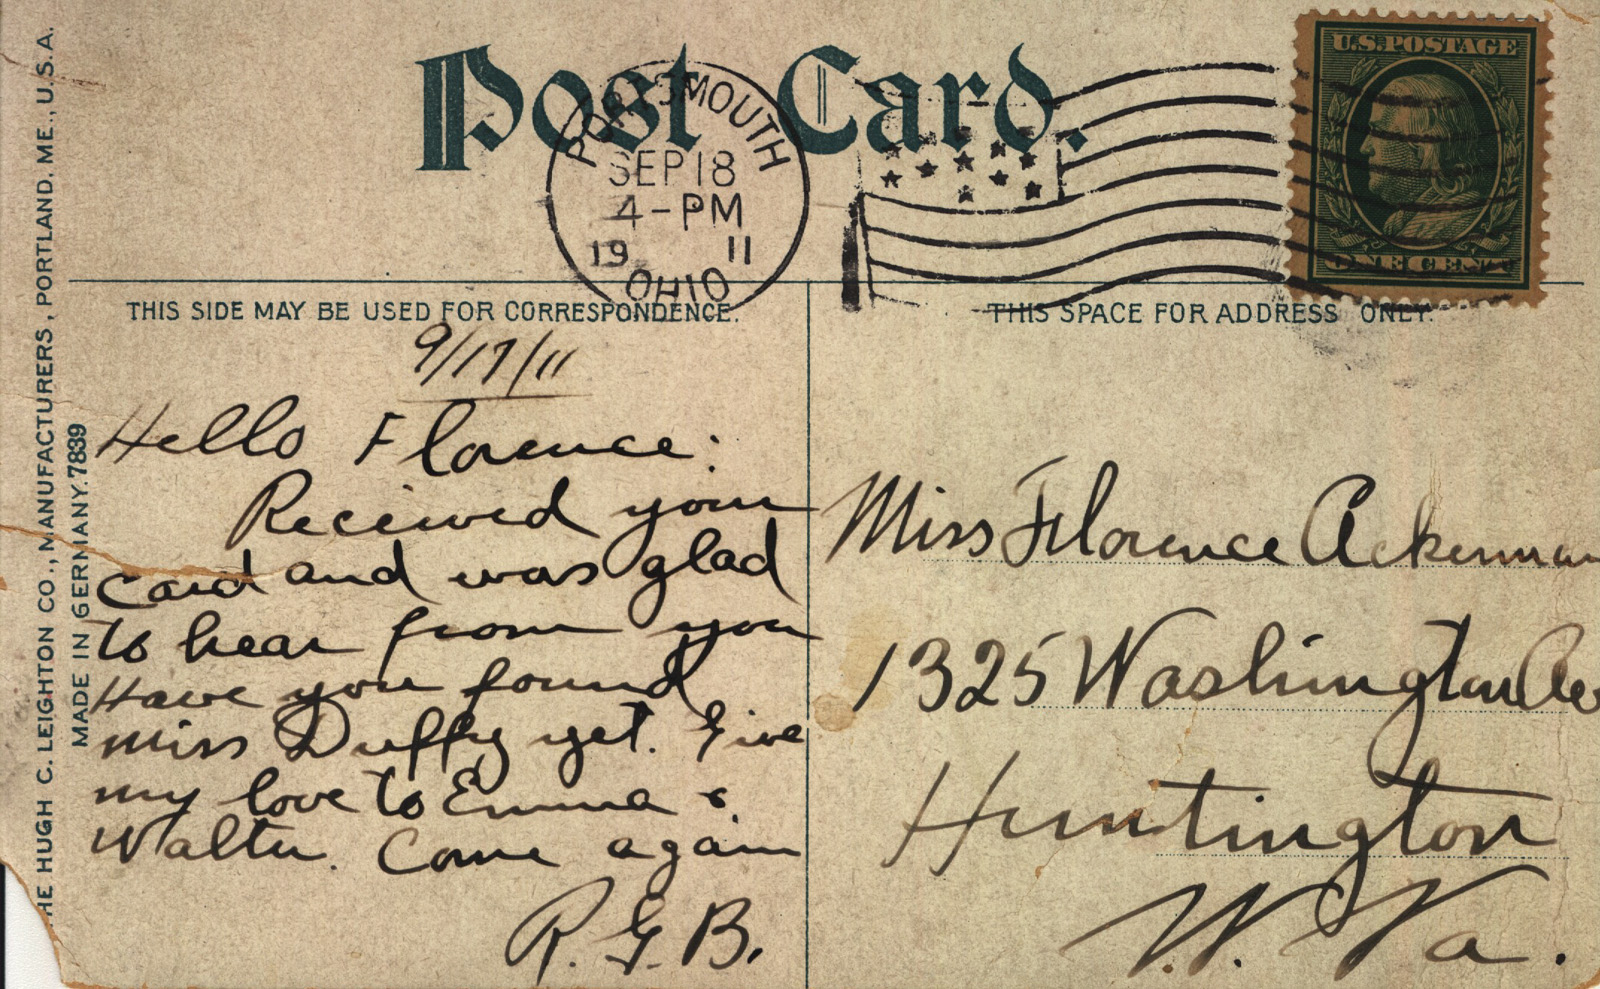 Post Card.
PORTSMOUTH
SEP 18
4-PM
19 11
OHIO
U.S. POSTAGE
ONE CENT
THIS SIDE MAY BE USED FOR CORRESPONDENCE.
THIS SPACE FOR ADDRESS ONLY.
9/17/11
Hello Florence:
Received your
card and was glad
to hear from you
Have you found
Miss Duffy yet. Give
my love to Emma &
Walter. Come again
R.G.B.
Miss Florence Ackerman
1325 Washington Ave
Huntington
W. Va.
HE HUGH C. LEIGHTON CO., MANUFACTURERS, PORTLAND, ME., U.S.A.
MADE IN GERMANY. 7839